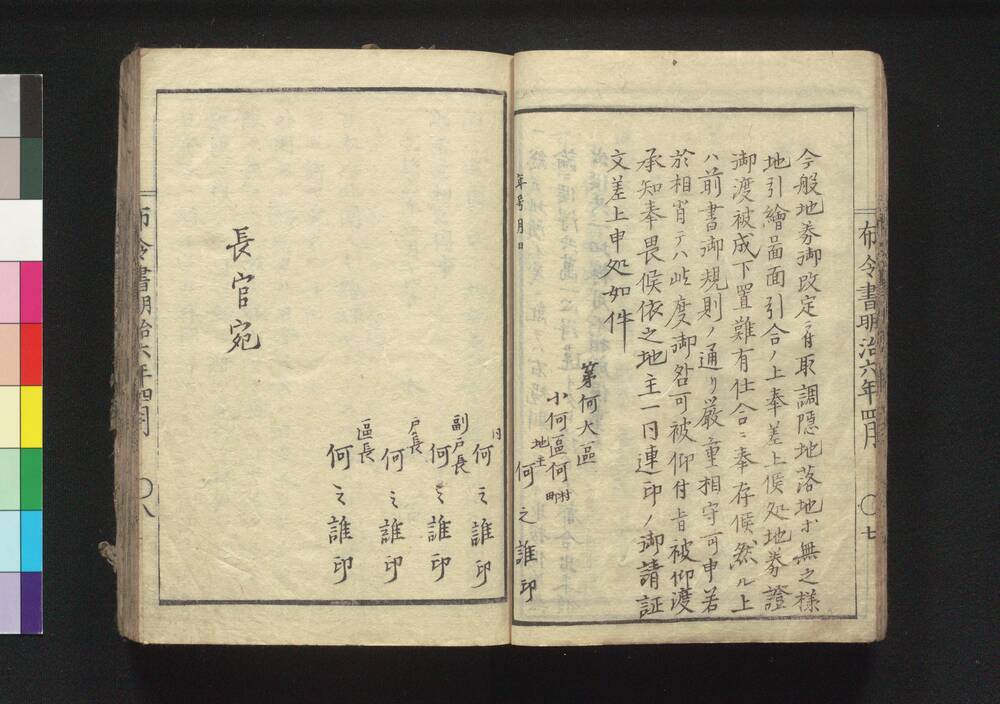 布令書明治六年四月 〇七
今般地券御改定ニ付取調隠地落地等無之様
地引繪啚面引合ノ上奉差上候処地券證
御渡被成下置難有仕合ニ奉存候然ル上
ハ前書御規則ノ通リ厳重相守可申若
於相背テハ此度御咎可被仰付旨被仰渡
承知奉畏候依之地主一同連印ノ御請証
文差上申処如件
第何大區
小何區何村町
地主 何之誰印
年号月日
同 何之誰印
副戸長 何之誰印
戸長 何之誰印
區長 何之誰印
長官宛
布令書明治六年四月 〇八